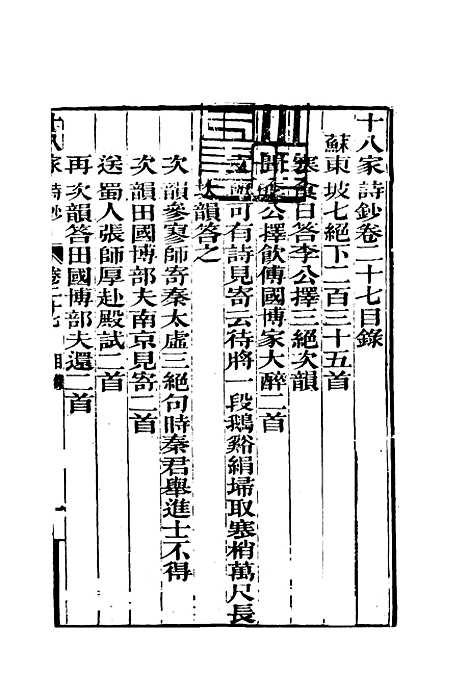 十八家詩鈔卷二十七目錄
蘇東坡七絕下二百三十五首
寒食日答李公擇三絕次韻
公擇飲傅國博家大醉二首
文與可有詩見寄云待將一段鵝谿絹埽取寒梢萬尺長
次韻答之
次韻參寥師寄秦太虛三絕句時秦君舉進士不得
次韻田國博部夫南京見寄二首
送蜀人張師厚赴殿試二首
再次韻答田國博部夫還二首
十八家詩鈔 卷二十七 目錄 一